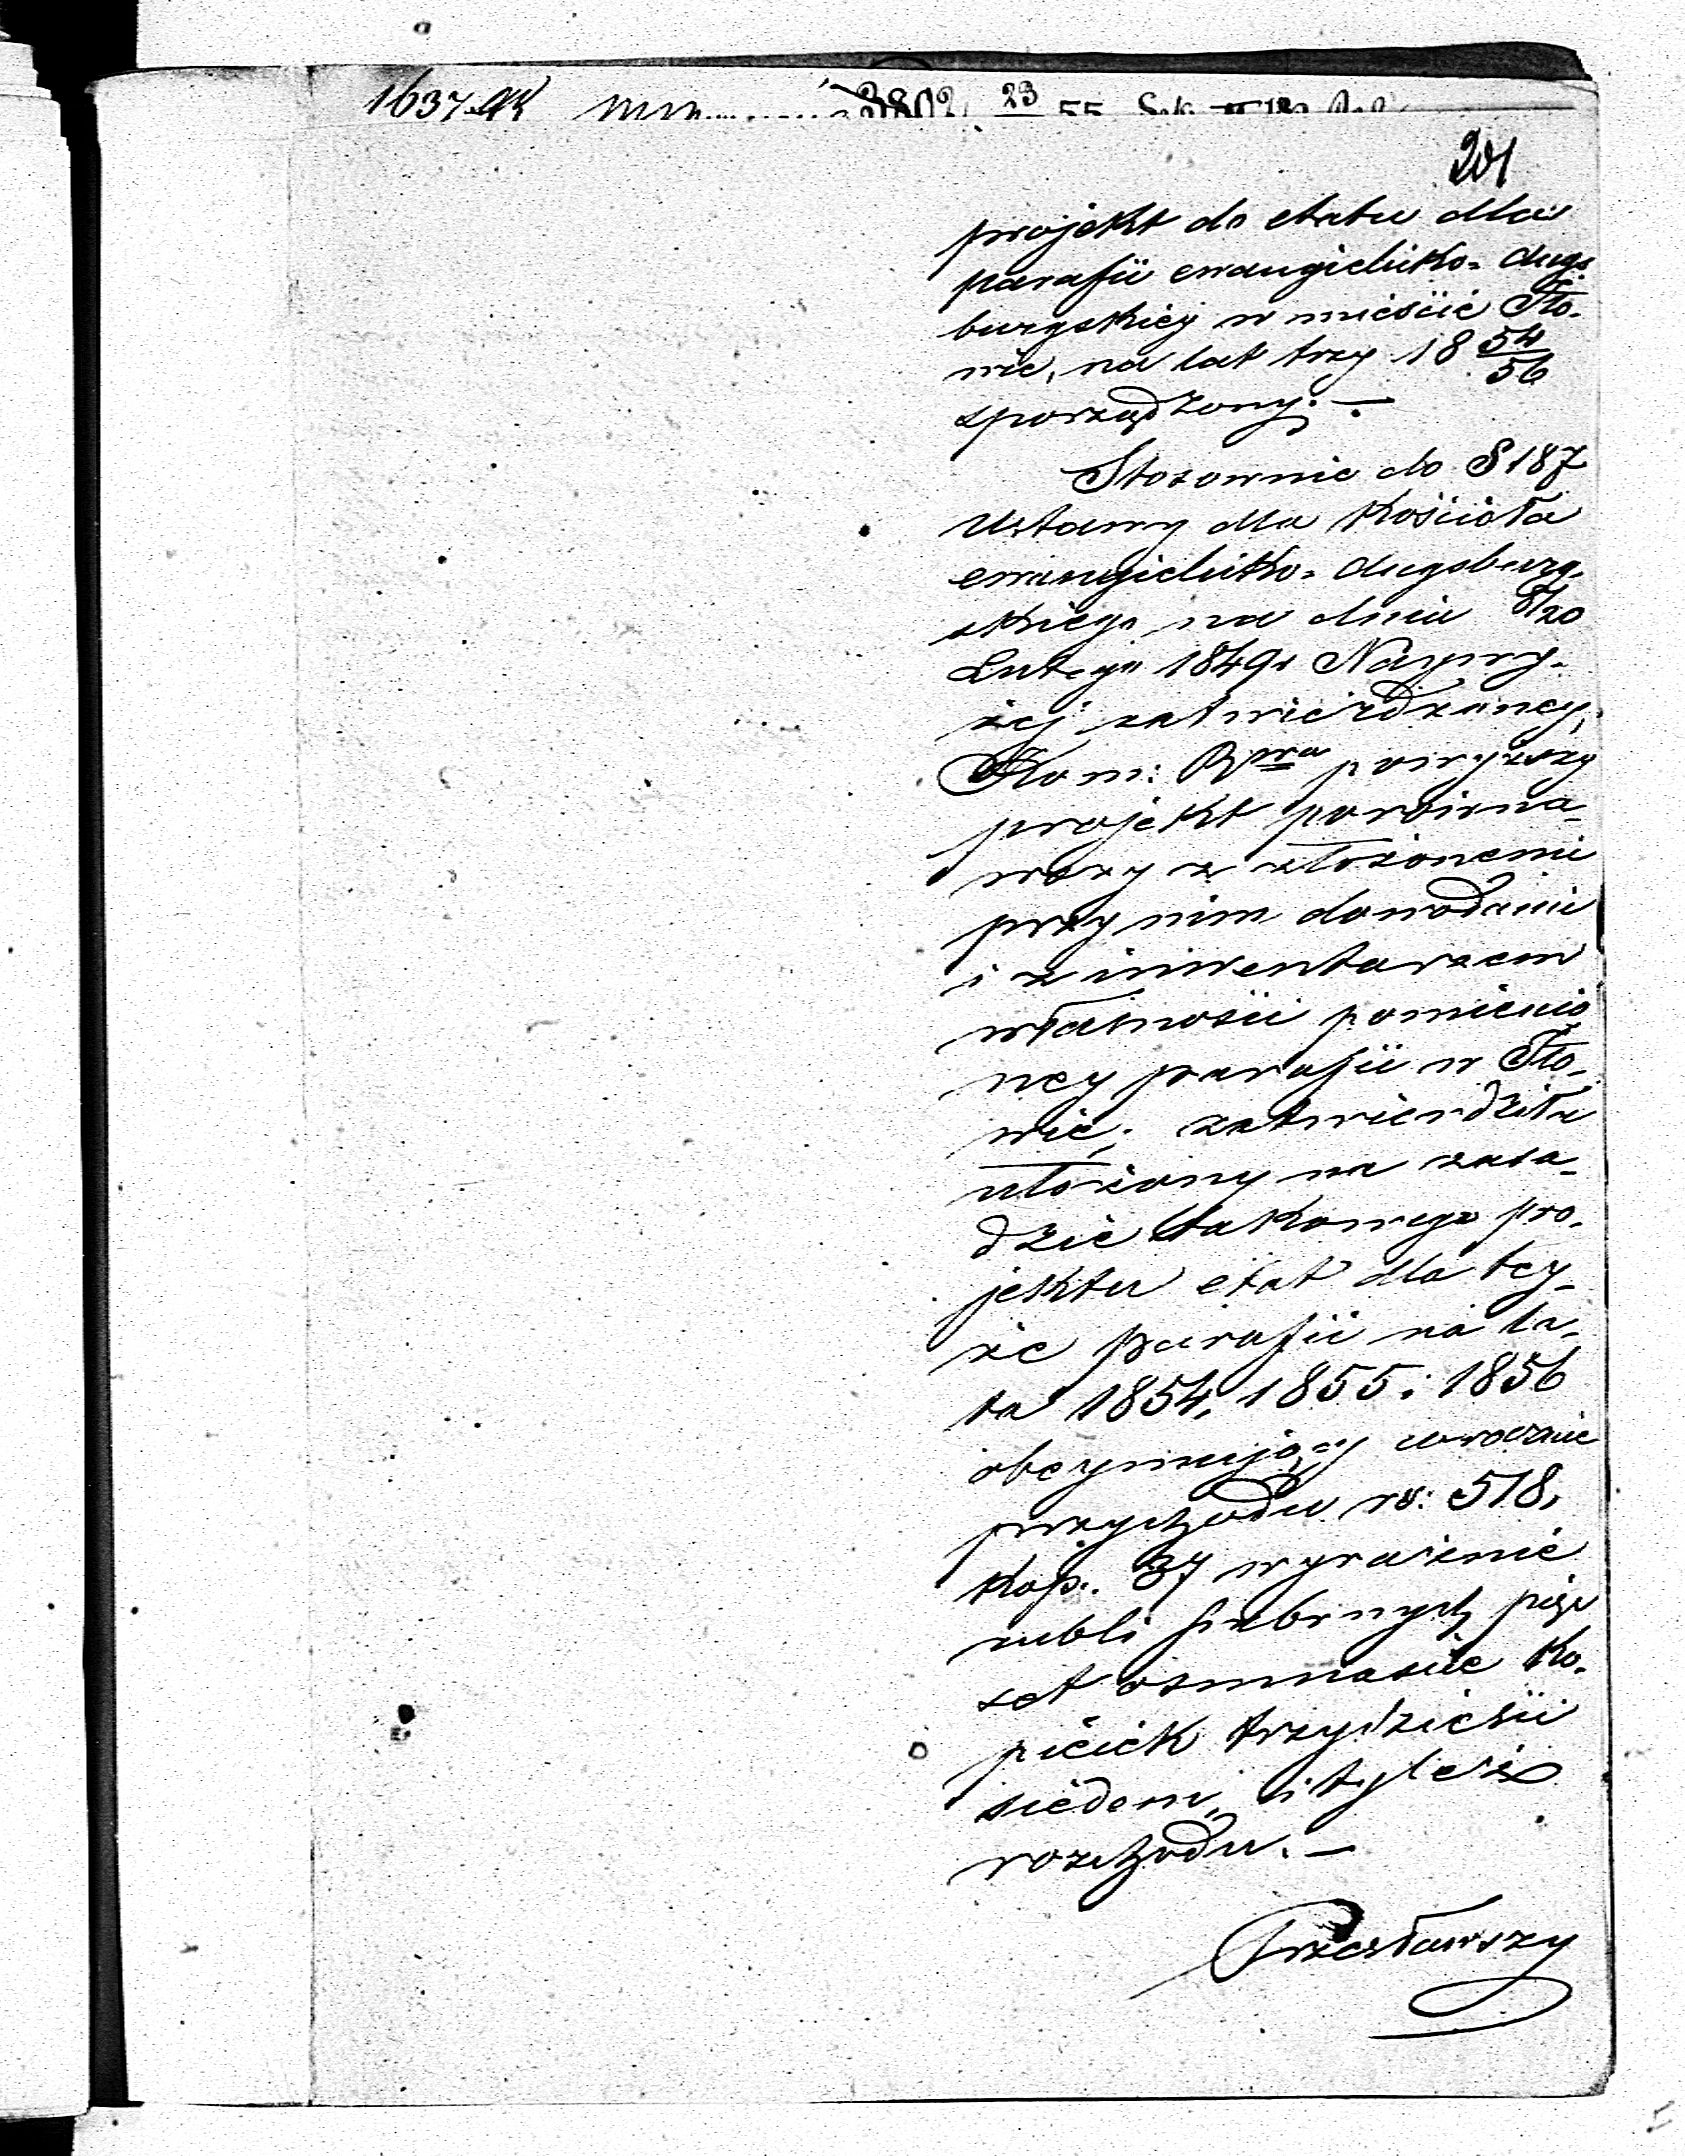 1637
3802 23 55
201
projekt do etatu dla
parafii ewangielicko= Augs=
burgskiej w mieście Iło-
wie, na lat trzy 18 54/56
sporządzony. —
Stosownie do § 187
Ustawy dla Kościoła
ewangielicko= Augsburg-
skiego na dniu 8/20
Lutego 1849 r Naywy-
żej zatwierdzoney,
Kom: Rwa powyższy
projekt porówna-
wszy z złożonemi
przy nim dowodami
i z inwentarzem
własności pomienio
ney parafii w Iło-
wie; zatwierdziła
ułożony na zasa-
dzie takowego pro-
jektu etat dla tey-
że parafii na la-
ta 1854, 1855 i 1856
obeymujący w rocznie
przychodu rs: 518,
Kop. 37 wyraźnie
rubli srebrnych pięć
set ośmnaście Ko-
piejek trzydzieści
siedem, i tyleż
rozchodu. —
Przesławszy